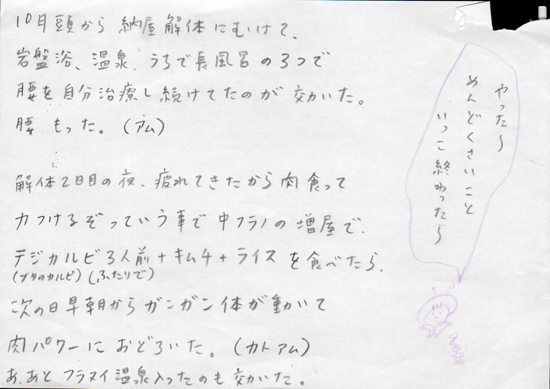 10月頭から 納屋解体にむけて、
岩盤浴、温泉、うちで長風呂の3つで
腰を自分治療し続けてたのが 効いた。
腰 もった。(アム)
解体2日目の夜、疲れてきたから肉食って
力つけるぞっていう事で中フラノの増屋で、
デジカルビ3人前+キムチ+ライスを食べたら、
(ブタのカルビ)(ふたりで)
次の日早朝からガンガン体が動いて
肉パワーにおどろいた。(カトアム)
あ、あと フラヌイ温泉入ったのも効いた。
やった〜
めんどくさいこと
いっこ終わった〜